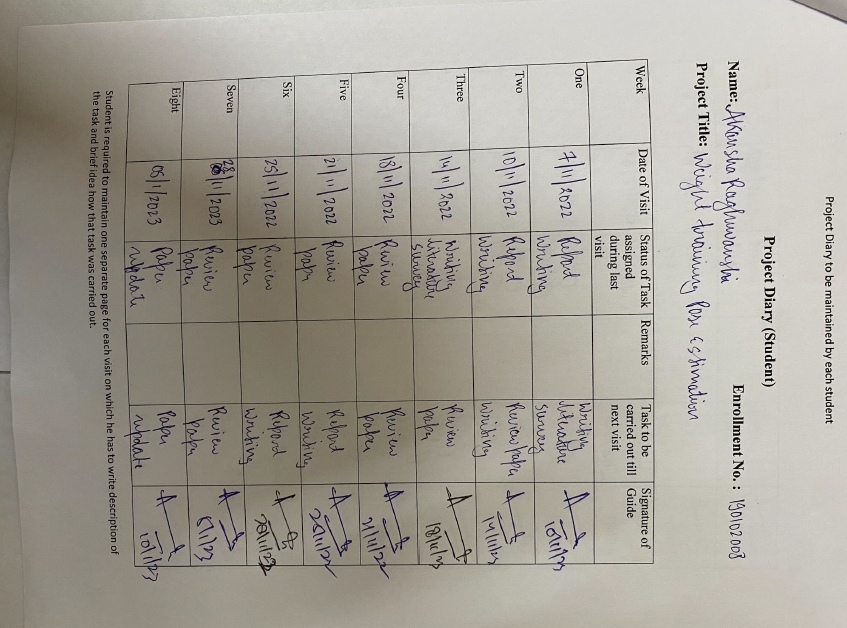 Project Diary to be maintained by each student
Project Diary (Student)
Name: Akansha Raghuwanshi Enrollment No. : 190102008
Project Title: Weight training Pose Estimation
Week Date of Visit Status of Task assigned during last visit Remarks Task to be carried out till next visit Signature of Guide
One 7/11/2022 Report Writing Writing literature survey 10/11/23
Two 10/11/2022 Report Writing Review paper Writing 14/11/23
Three 14/11/2022 Writing literature survey Review paper 18/11/23
Four 18/11/2022 Review paper Review paper 21/11/22
Five 21/11/2022 Review paper Report Writing 25/11/22
Six 25/11/2022 Review paper Report Writing
Seven 28/11/2023 Review paper Review paper 5/1/23
Eight 05/1/2023 Paper update Paper update 10/1/23
Student is required to maintain one separate page for each visit on which he has to write description of
the task and brief idea how that task was carried out.